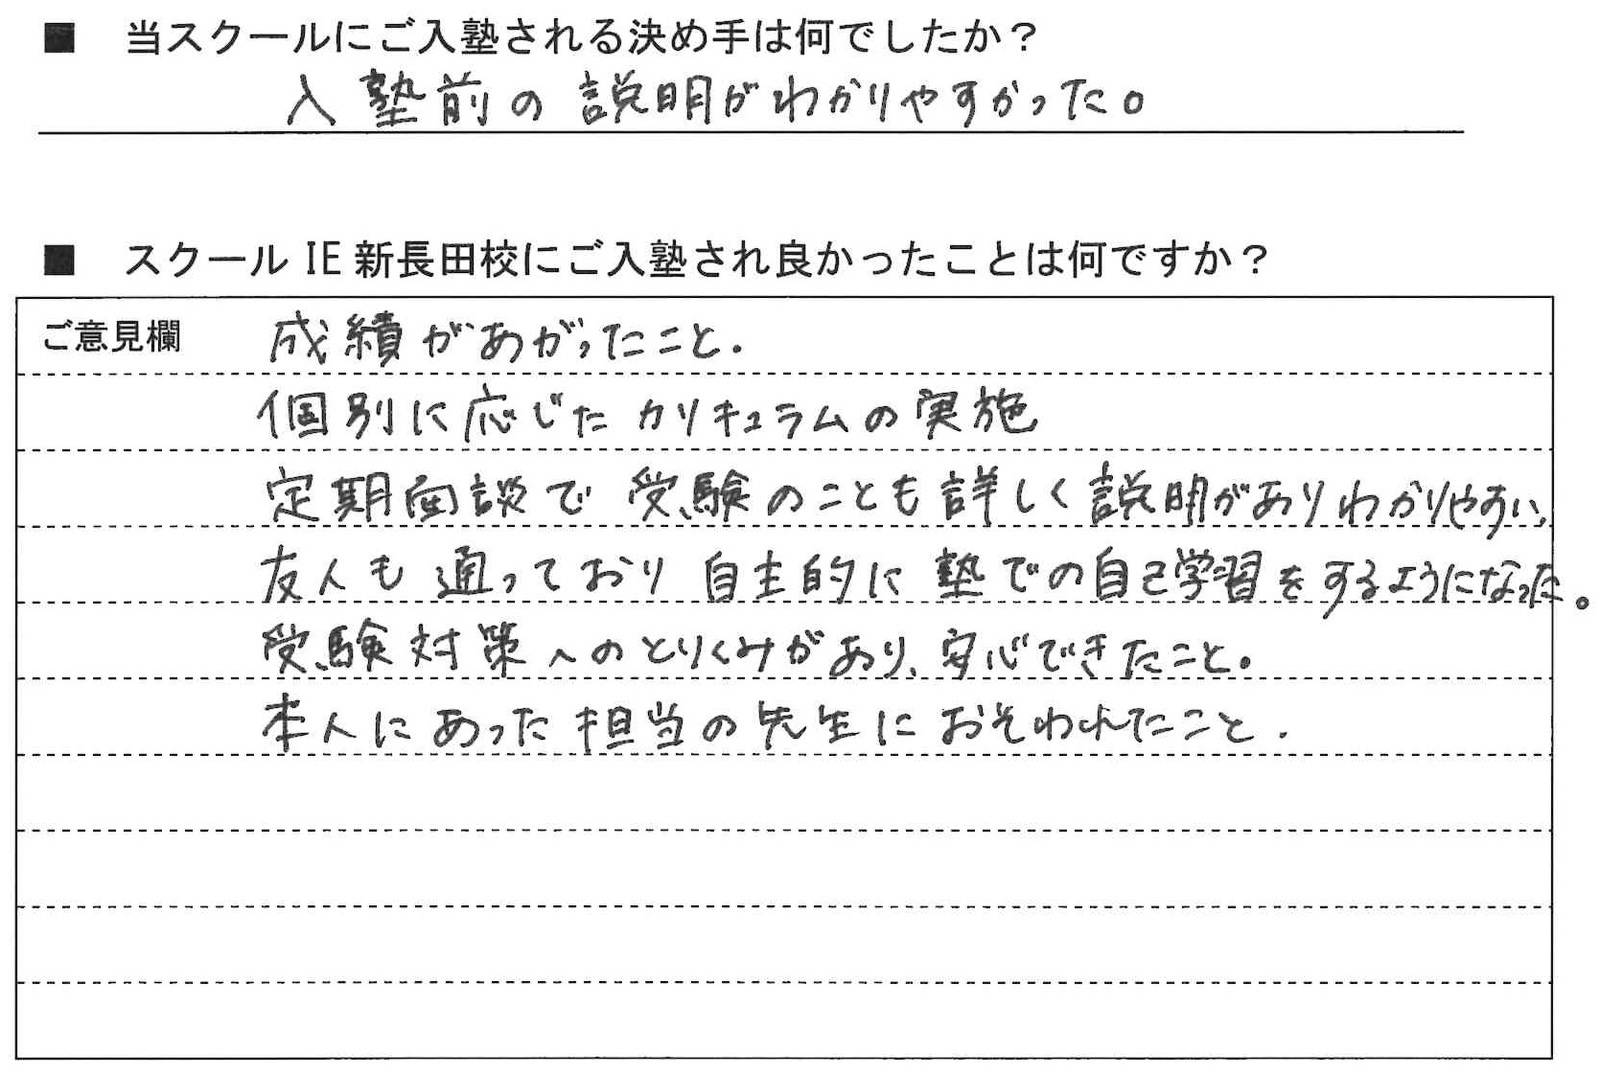 ■ 当スクールにご入塾される決め手は何でしたか？
入塾前の説明がわかりやすかった。
■ スクール IE 新長田校にご入塾され良かったことは何ですか？
ご意見欄 成績があがったこと.
個別に応じた カリキュラムの実施
定期面談で 受験のことも詳しく説明がありわかりやすい、
友人も通っており 自主的に塾での自己学習をするようになった。
受験対策へのとりくみがあり、安心できたこと。
本人にあった担当の先生におそわれたこと.